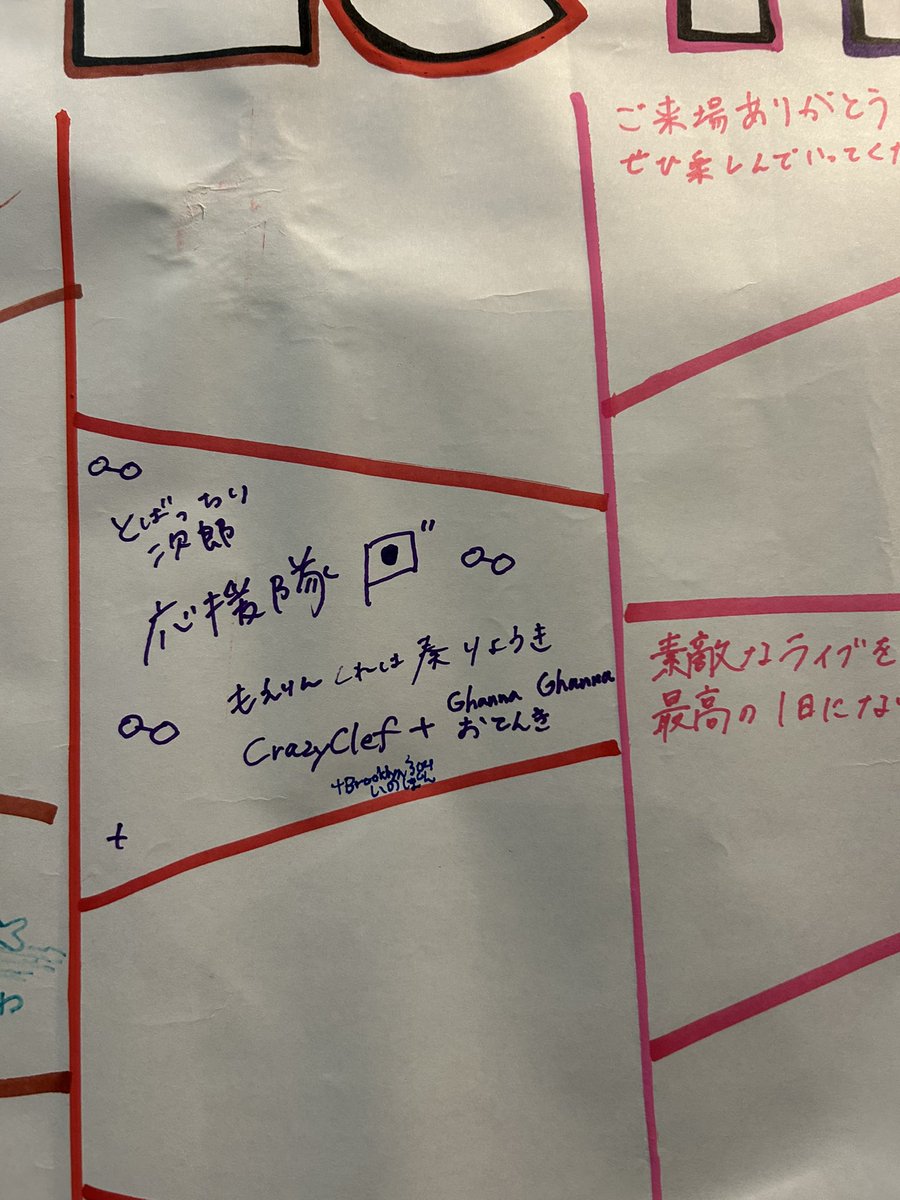 ご来場ありがとう
ぜひ楽しんでいってくだ
とばっちり
二次郎
応援隊
もえりん くれは 奏 りょうき
CrazyClef + Ghanna Ghanna
おてんき
+Brooklyn304
いのぽん
+
素敵なライブを
最高の1日にな